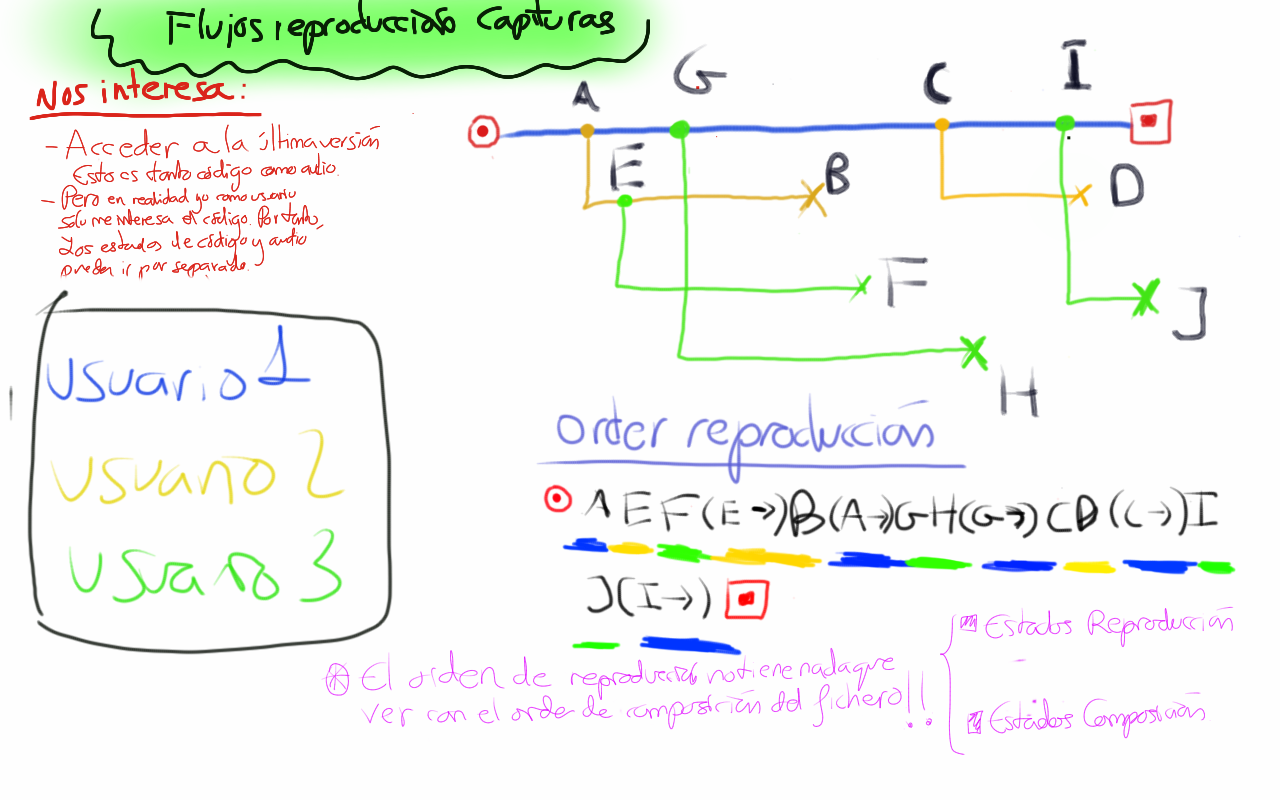 Flujos reproducción capturas
Nos interesa:
- Acceder a la última versión
Esto es tanto código como audio.
- Pero en realidad yo como usuario
solo me interesa el código. Por tanto,
Los estados de código y audio
pueden ir por separado.
A G C I
E B D
F J
H
usuario 1
usuario 2
usuario 3
Order reproducción
A E F (E→) B (A→) G H (G→) C D (C→) I
J (I→)
El orden de reproducción no tiene nada que
ver con el order de composición del fichero!!
Estados Reproducción
-
Estados Composición